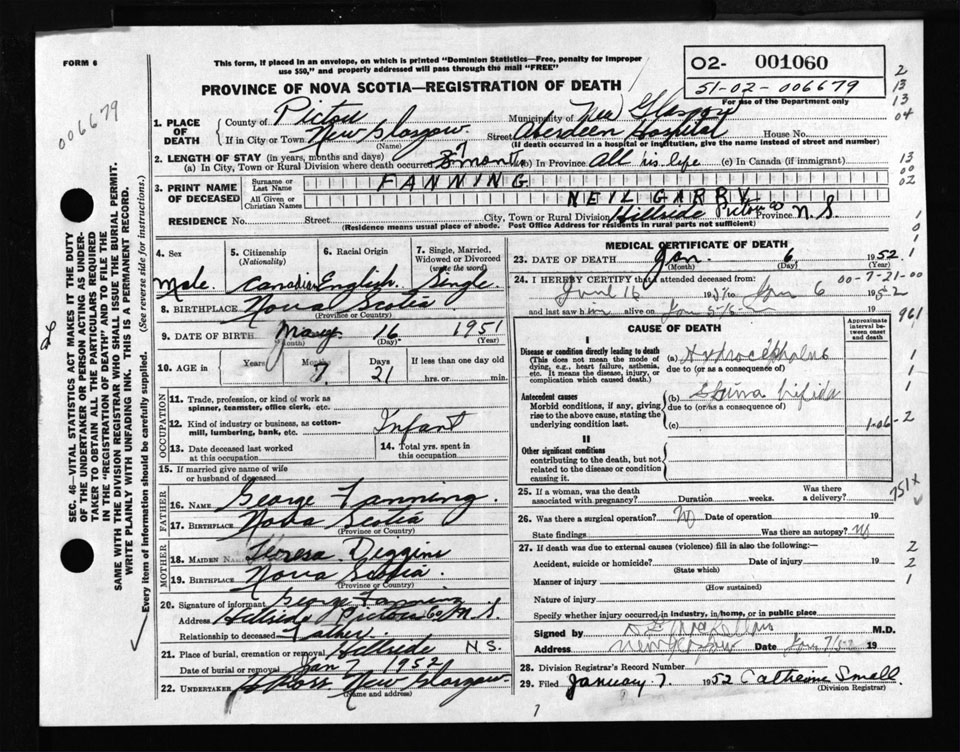 FORM 6
This form, if placed in an envelope, on which is printed "Dominion Statistics—Free, penalty for improper
use $50," and properly addressed will pass through the mail "FREE"
PROVINCE OF NOVA SCOTIA—REGISTRATION OF DEATH
O2- 001060
51-02-006679
For use of the Department only
006679
1. PLACE OF DEATH
County of Pictou Municipality of New Glasgow
If in City or Town New Glasgow. (Name) Street Aberdeen Hospital House No.
(If death occurred in a hospital or institution, give the name instead of street and number)
2. LENGTH OF STAY (in years, months and days)
(a) In City, Town or Rural Division where death occurred 7 months (b) In Province All his life (c) In Canada (if immigrant)
3. PRINT NAME OF DECEASED
Surname or Last Name FANNING
All Given or Christian Names NEIL GARRY
RESIDENCE No. Street City, Town or Rural Division Hillside Pictou Co Province N.S.
(Residence means usual place of abode. Post Office Address for residents in rural parts not sufficient)
4. Sex 5. Citizenship (Nationality) 6. Racial Origin 7. Single, Married, Widowed or Divorced (write the word)
Male. Canadian English. Single.
8. BIRTHPLACE Nova Scotia
(Province or Country)
9. DATE OF BIRTH May 16 1951
(Month) (Day) (Year)
10. AGE in Years Months 7 Days 21 If less than one day old hrs. or min.
OCCUPATION
11. Trade, profession, or kind of work as spinner, teamster, office clerk, etc.
12. Kind of industry or business, as cotton-mill, lumbering, bank, etc. Infant
13. Date deceased last worked at this occupation 14. Total yrs. spent in this occupation
15. If married give name of wife or husband of deceased
FATHER
16. NAME George Fanning.
17. BIRTHPLACE Nova Scotia
(Province or Country)
MOTHER
18. MAIDEN NAME Teresa Diggins
19. BIRTHPLACE Nova Scotia.
(Province or Country)
20. Signature of informant George Fanning
Address Hillside Pictou Co N.S.
Relationship to deceased Father.
21. Place of burial, cremation or removal Hillside N.S.
Date of burial or removal Jan 7 1952
22. UNDERTAKER Ross New Glasgow.
(Name and address)
MEDICAL CERTIFICATE OF DEATH
23. DATE OF DEATH Jan. 6 1952.
(Month) (Day) (Year)
24. I HEREBY CERTIFY that I attended deceased from: 00-7-21-00
Jan 6 1952
and last saw him alive on 19
CAUSE OF DEATH
Approximate interval between onset and death
I
Disease or condition directly leading to death
(This does not mean the mode of dying, e.g., heart failure, asthenia, etc. It means the disease, injury, or complication which caused death.)
(a) Hydrocephalus
due to (or as a consequence of)
Antecedent causes
Morbid conditions, if any, giving rise to the above cause, stating the underlying condition last.
(b) Spina bifida
due to (or as a consequence of)
(c)
II
Other significant conditions
contributing to the death, but not related to the disease or condition causing it.
25. If a woman, was the death associated with pregnancy? Duration weeks. Was there a delivery?
26. Was there a surgical operation? No Date of operation 19
State findings Was there an autopsy? No
27. If death was due to external causes (violence) fill in also the following:—
Accident, suicide or homicide? (State which) Date of injury 19
Manner of injury (How sustained)
Nature of injury
Specify whether injury occurred in industry, in home, or in public place
Signed by M.D.
Address New Glasgow Date Jan 7/52 19
28. Division Registrar's Record Number
29. Filed January 7. 1952 Catherine Small
(Division Registrar)
SEC. 46—VITAL STATISTICS ACT MAKES IT THE DUTY
OF THE UNDERTAKER OR PERSON ACTING AS UNDER-
TAKER TO OBTAIN ALL THE PARTICULARS REQUIRED
IN THE "REGISTRATION OF DEATH" AND TO FILE THE
SAME WITH THE DIVISION REGISTRAR WHO SHALL ISSUE THE BURIAL PERMIT.
WRITE PLAINLY WITH UNFADING INK. THIS IS A PERMANENT RECORD.
Every item of information should be carefully supplied. (See reverse side for instructions.)
2
13
13
04
13
00
02
1
0
1
1
961
1
1
1
1-06-2
751x
2
2
1